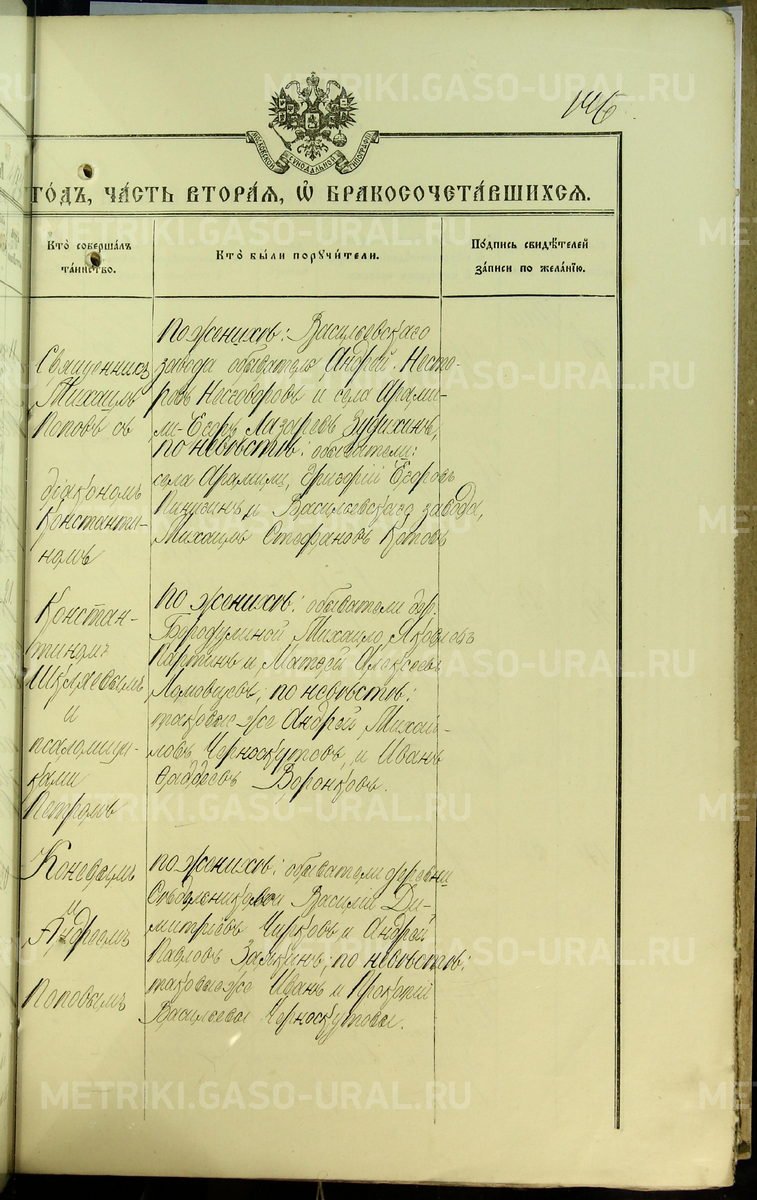 146
МОСКОВСКОЙ СѴНОДАЛЬНОЙ ТИПОГРАФІИ
ГО́ДЪ, ЧА́СТЬ ВТОРА́Я, Ѽ БРАКОСОЧЕТА́ВШИХСЯ.
Кто̀ соверша́лъ
та́инство.
Кто̀ бы́ли поручи́тели.
По́дпись свидѣ́телей
за́писи по жела́нїю.
Священникъ
Михаилъ
Поповъ съ
діакономъ
Константи-
номъ
По женихѣ: Васильевскаго
завода обыватель Андрей Несто-
ровъ и села Арами-
ли Егоръ Лазаревъ
по невѣстѣ: обыватели:
села Арамили, Григорій Егоровъ
и Васильевскаго завода,
Михаилъ Стефановъ Котовъ
Констан-
тиномъ
и
псаломщи-
ками
Петромъ
По женихѣ: обыватели дер.
Бородулиной Михаилъ Яковлевъ
и Матвей Алексеевъ
Ломовцевъ, по невѣстѣ:
таковые же Андрей Михай-
ловъ Черноскутовъ, и Иванъ
Ѳаддеевъ Воронковъ.
Коневымъ
и
Андреемъ
Поповымъ
По женихѣ: обыватели деревни
Василій Ди-
митріевъ Чирковъ и Андрей
Павловъ по невѣстѣ:
таковые же Иванъ и Прокопій
Васильевы Черноскутовы.
METRIKI.GASO-URAL.RU